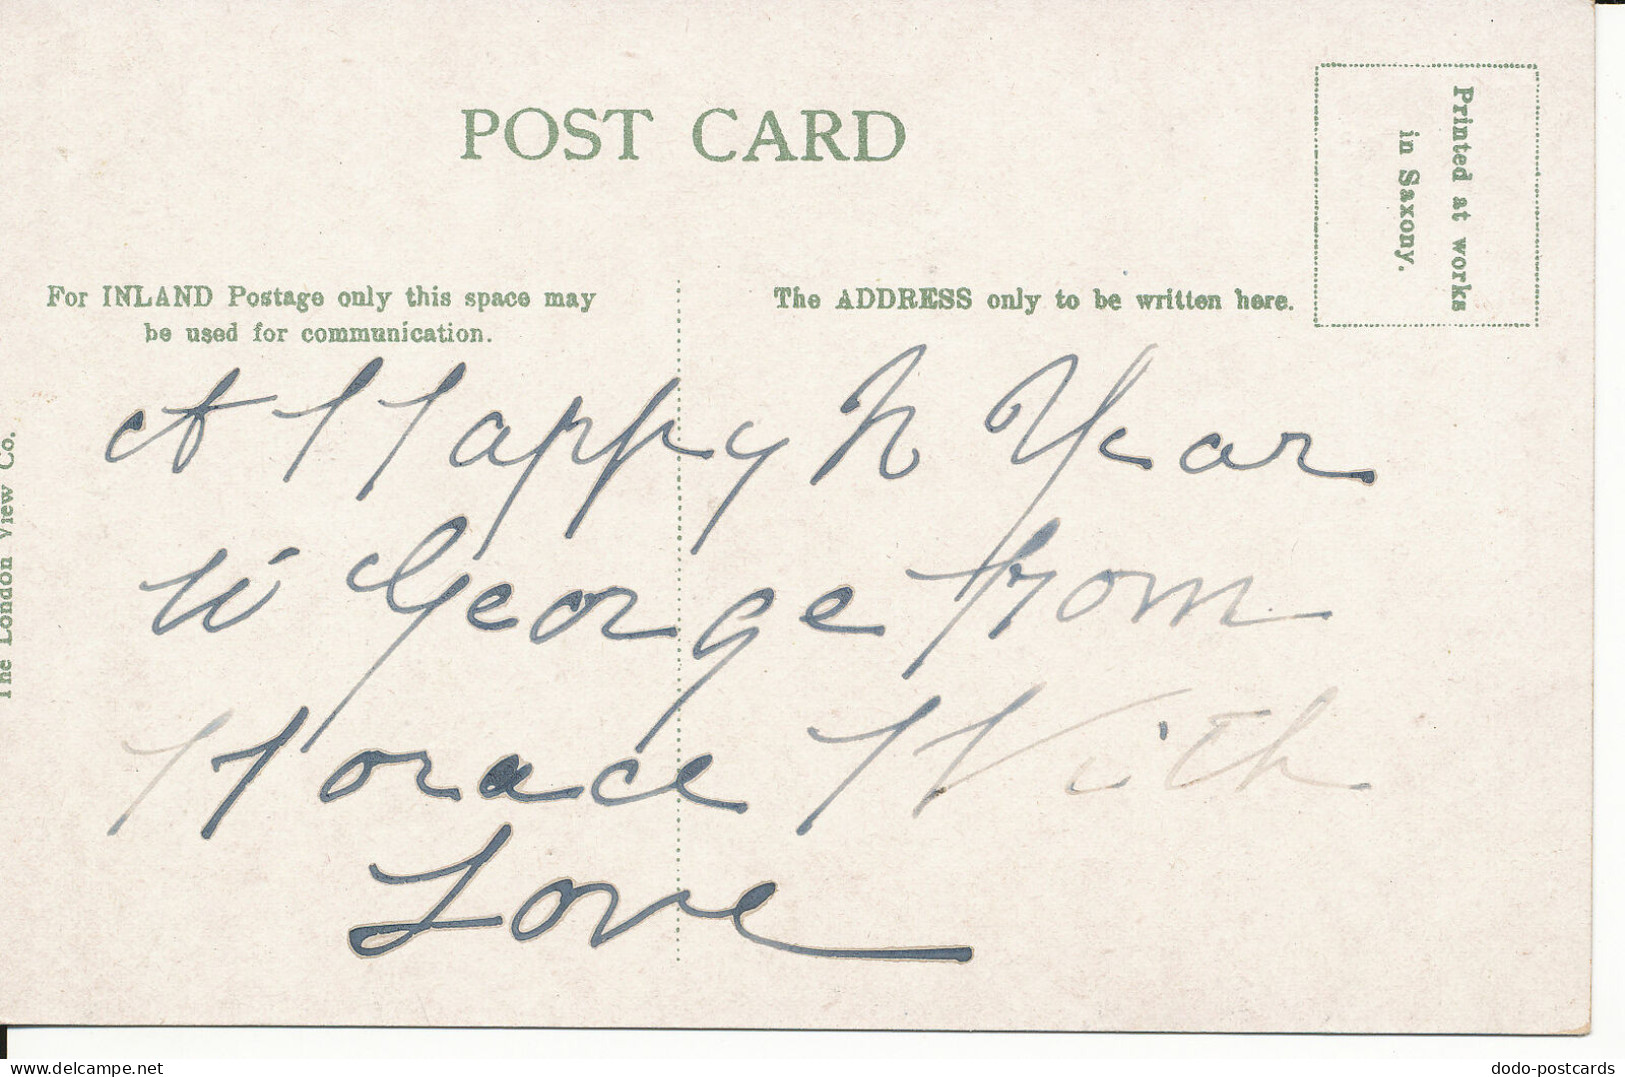 POST CARD
Printed at works
in Saxony.
For INLAND Postage only this space may
be used for communication.
The ADDRESS only to be written here.
The London View Co.
A Happy N Year
to George from
Horace With
Love
delcampe.net
dodo-postcards